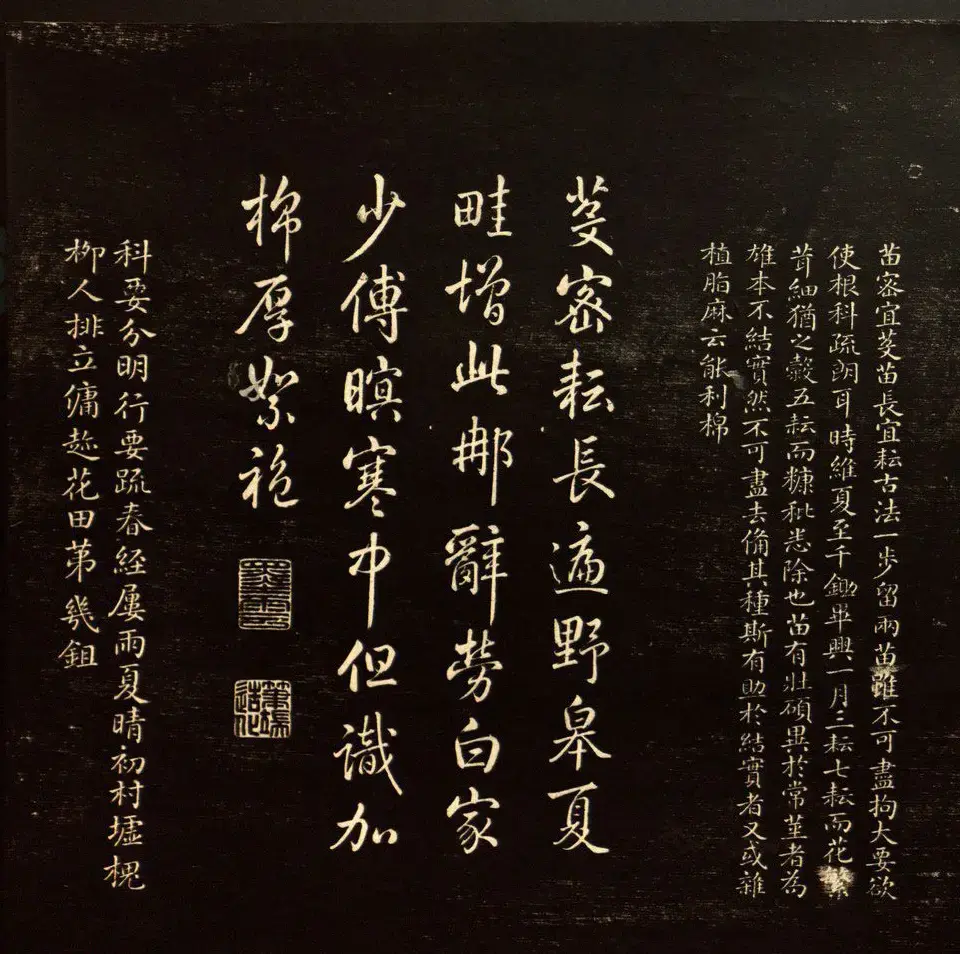 苗密宜芟苗長宜耘古法一步留兩苗雖不可盡拘大要欲
使根科疏朗耳時維夏至千鋤畢興一月三耘七耘而花繁
茸細猶之穀五耘而糠秕悉除也苗有壯碩異於常莖者為
雄本不結實然不可盡去備其種斯有助於結實者又或雜
植脂麻云能利棉
芟密耘長遍野皋夏
畦增此那辭勞白家
少傅暝寒中但識加
棉厚絮袍
筆端造化
科要分明行要疏春經屢雨夏晴初村墟槐
柳人排立傭趁花田第幾鉏